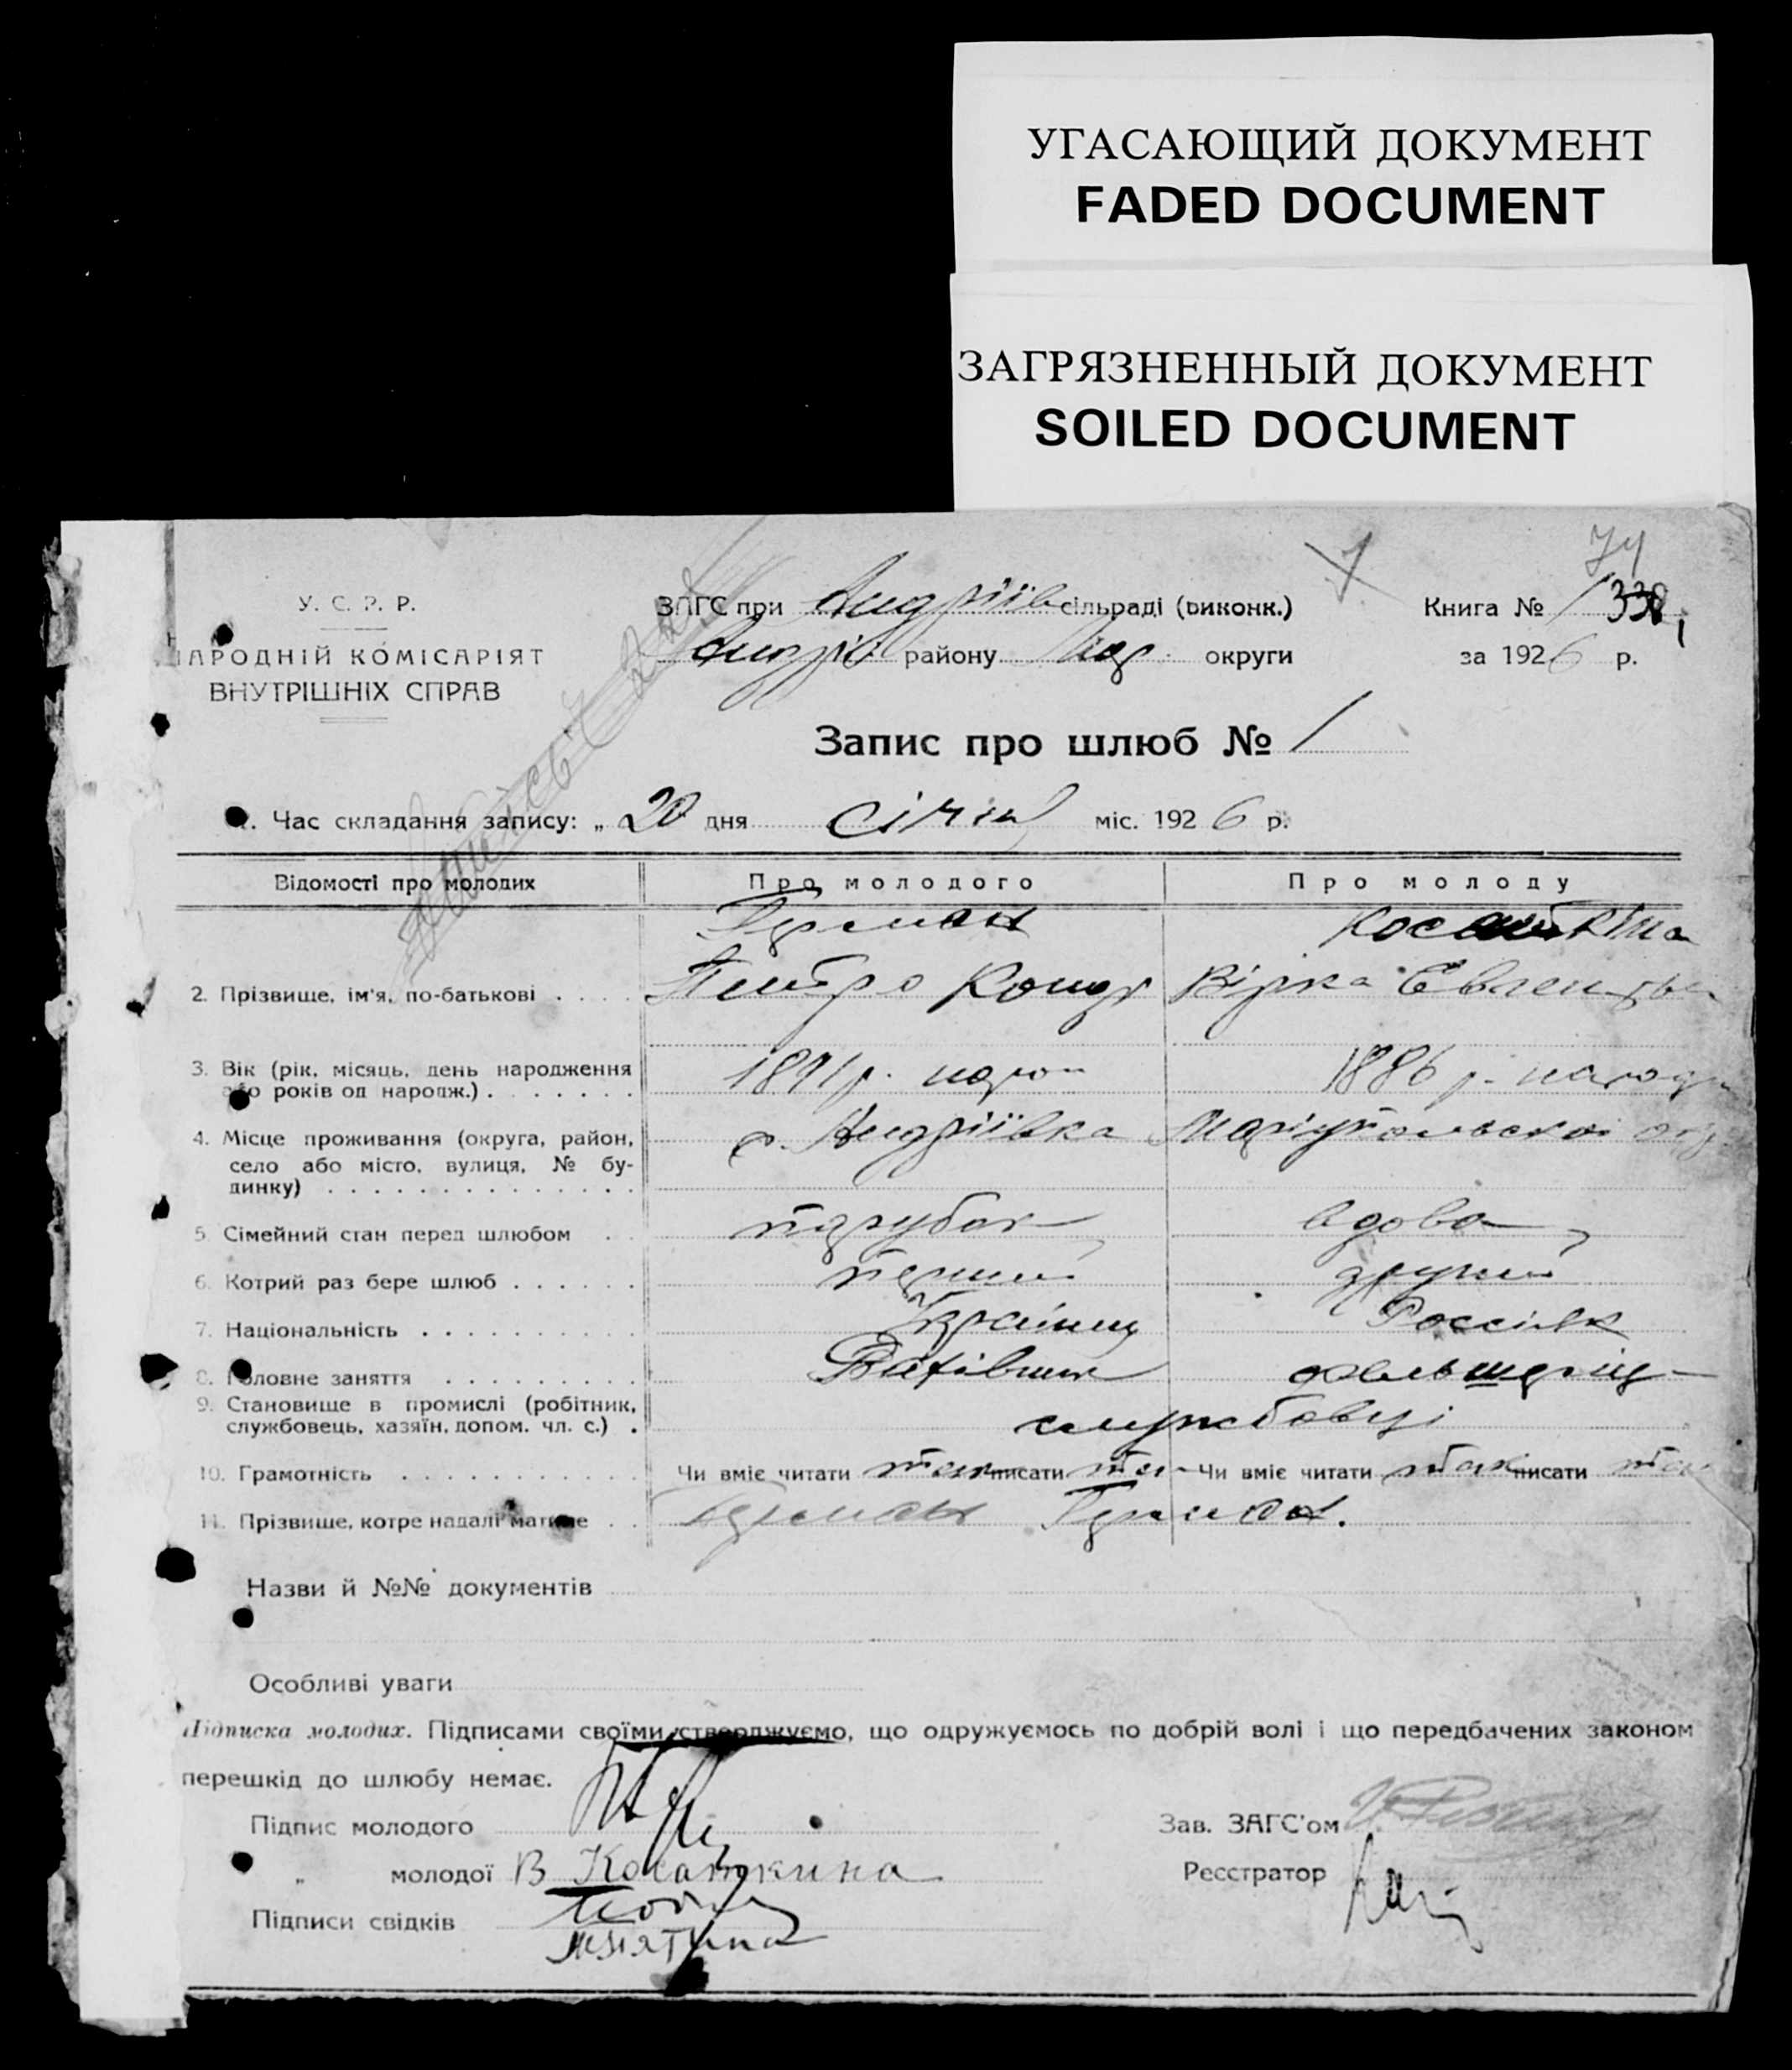 УГАСАЮЩИЙ ДОКУМЕНТ
FADED DOCUMENT
ЗАГРЯЗНЕННЫЙ ДОКУМЕНТ
SOILED DOCUMENT
74
У. С. Р. Р.
НАРОДНІЙ КОМІСАРІЯТ
ВНУТРІШНІХ СПРАВ
ЗАГС при Андріїв сільраді (виконк.)
Андрі району Мар. округи
Книга № 1 338
за 1926 р.
Запис про шлюб № 1
1. Час складання запису: „ 20 дня січня міс. 1926 р.
Відомості про молодих
Про молодого
Про молоду
2. Прізвище, ім'я, по-батькові . . . .
Герман
Петро Кондр
Вірка Євген
3. Вік (рік, місяць, день народження
або років од народж.) . . . . . . .
1891 р. народ
1886 р. народж
4. Місце проживання (округа, район,
село або місто, вулиця, № бу-
динку) . . . . . . . . . . . . . .
с. Андріївка Маріупольскоі окр
5. Сімейний стан перед шлюбом . .
парубок
вдова
6. Котрий раз бере шлюб . . . . . .
перший
другий
7. Національність . . . . . . . . . .
Українец
Россіяк
8. Головне заняття . . . . . . . . .
фельшериц
9. Становище в промислі (робітник,
службовець, хазяїн, допом. чл. с.) .
службовці
10. Грамотність . . . . . . . . . . .
Чи вміє читати так писати так Чи вміє читати так писати так
11. Прізвище, котре надалі матиме . .
Герман Герман.
Назви й №№ документів
Особливі уваги
Підписка молодих. Підписами своїми стверджуємо, що одружуємось по добрій волі і що передбачених законом
перешкід до шлюбу немає.
Підпис молодого
Зав. ЗАГС'ом
„ молодої В Косаткина
Реєстратор
Підписи свідків